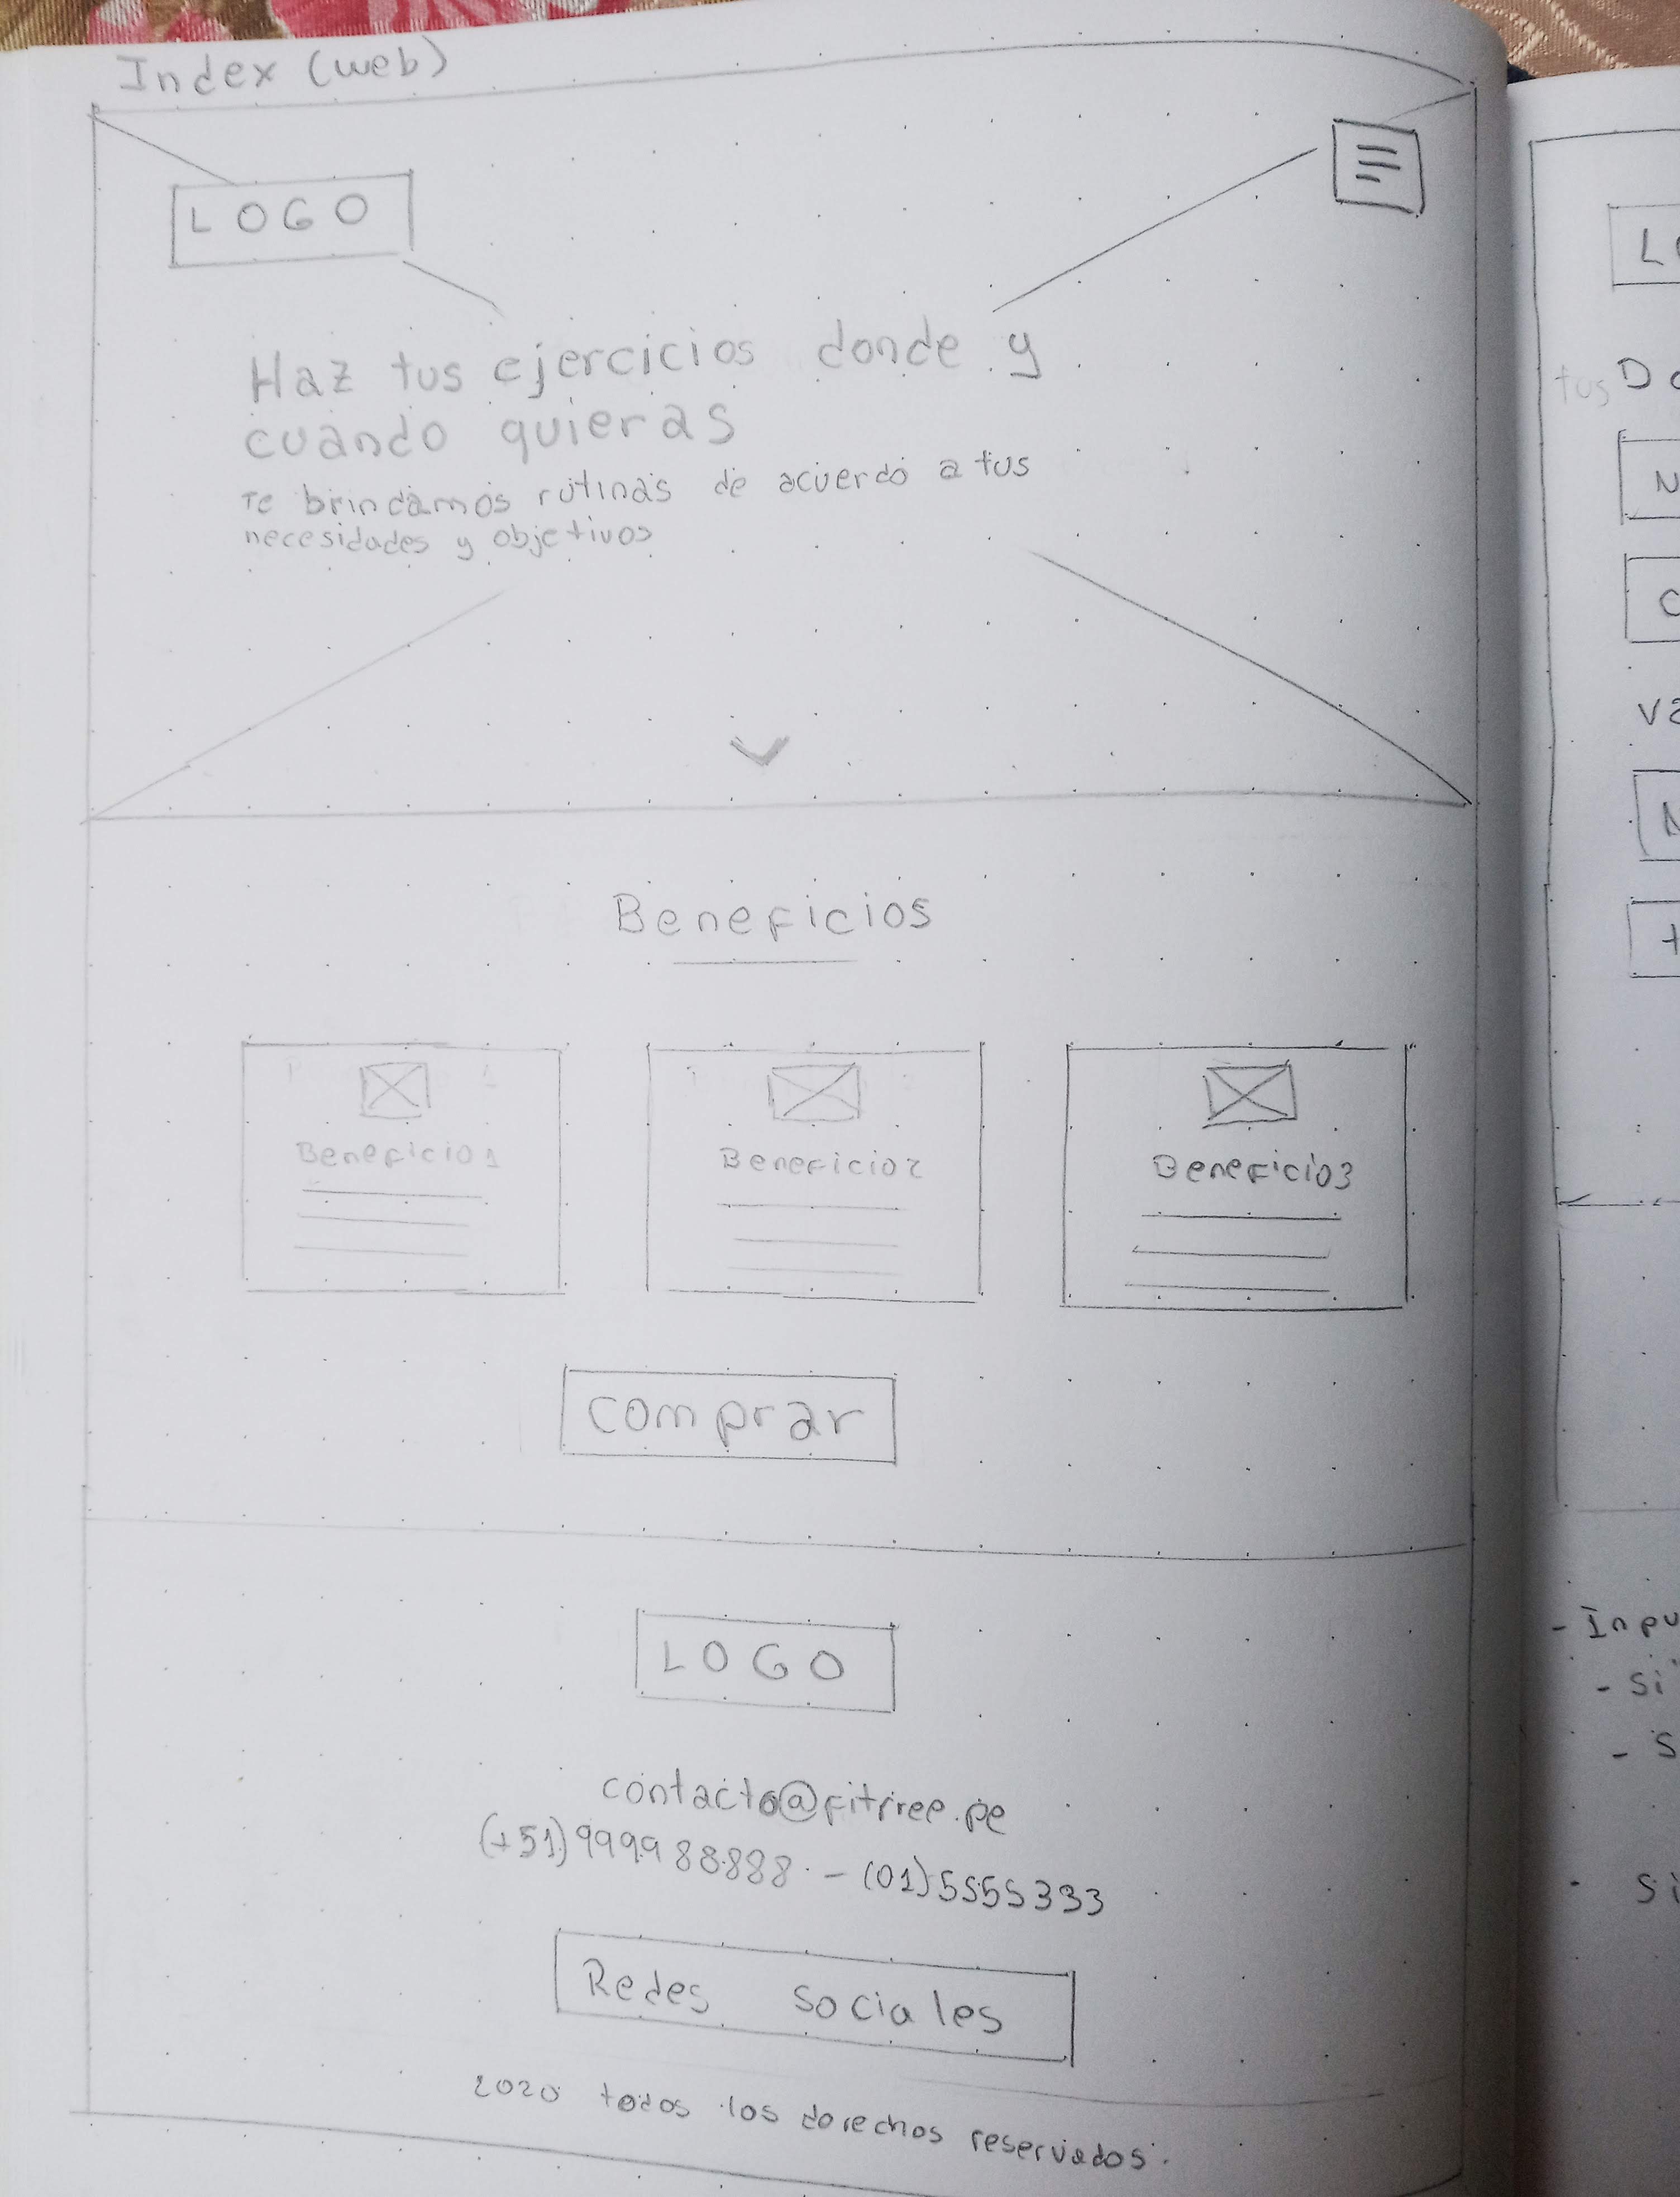 Index (web)
LOGO
Haz tus ejercicios donde y
cuando quieras
Te brindamos rutinas de acuerdo a tus
necesidades y objetivos
Beneficios
Beneficio1
Beneficio2
Beneficio3
comprar
LOGO
contacto@fitfree.pe
(+51)999988888 - (01)5555333
Redes sociales
2020 todos los derechos reservados.
tus
- Inpu
- si
- S